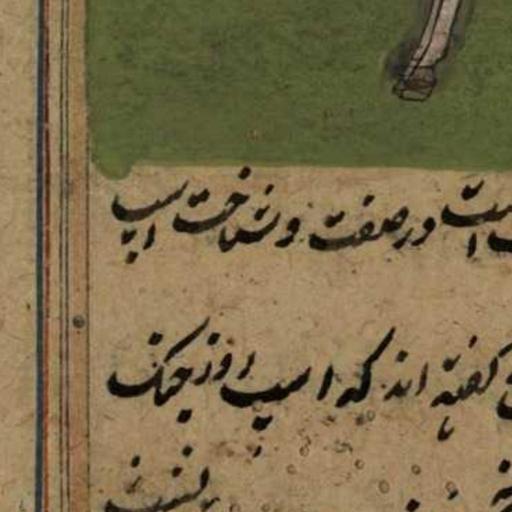 است در صفت و شناخت اسپ
گفته اند که اسپ روز جنک